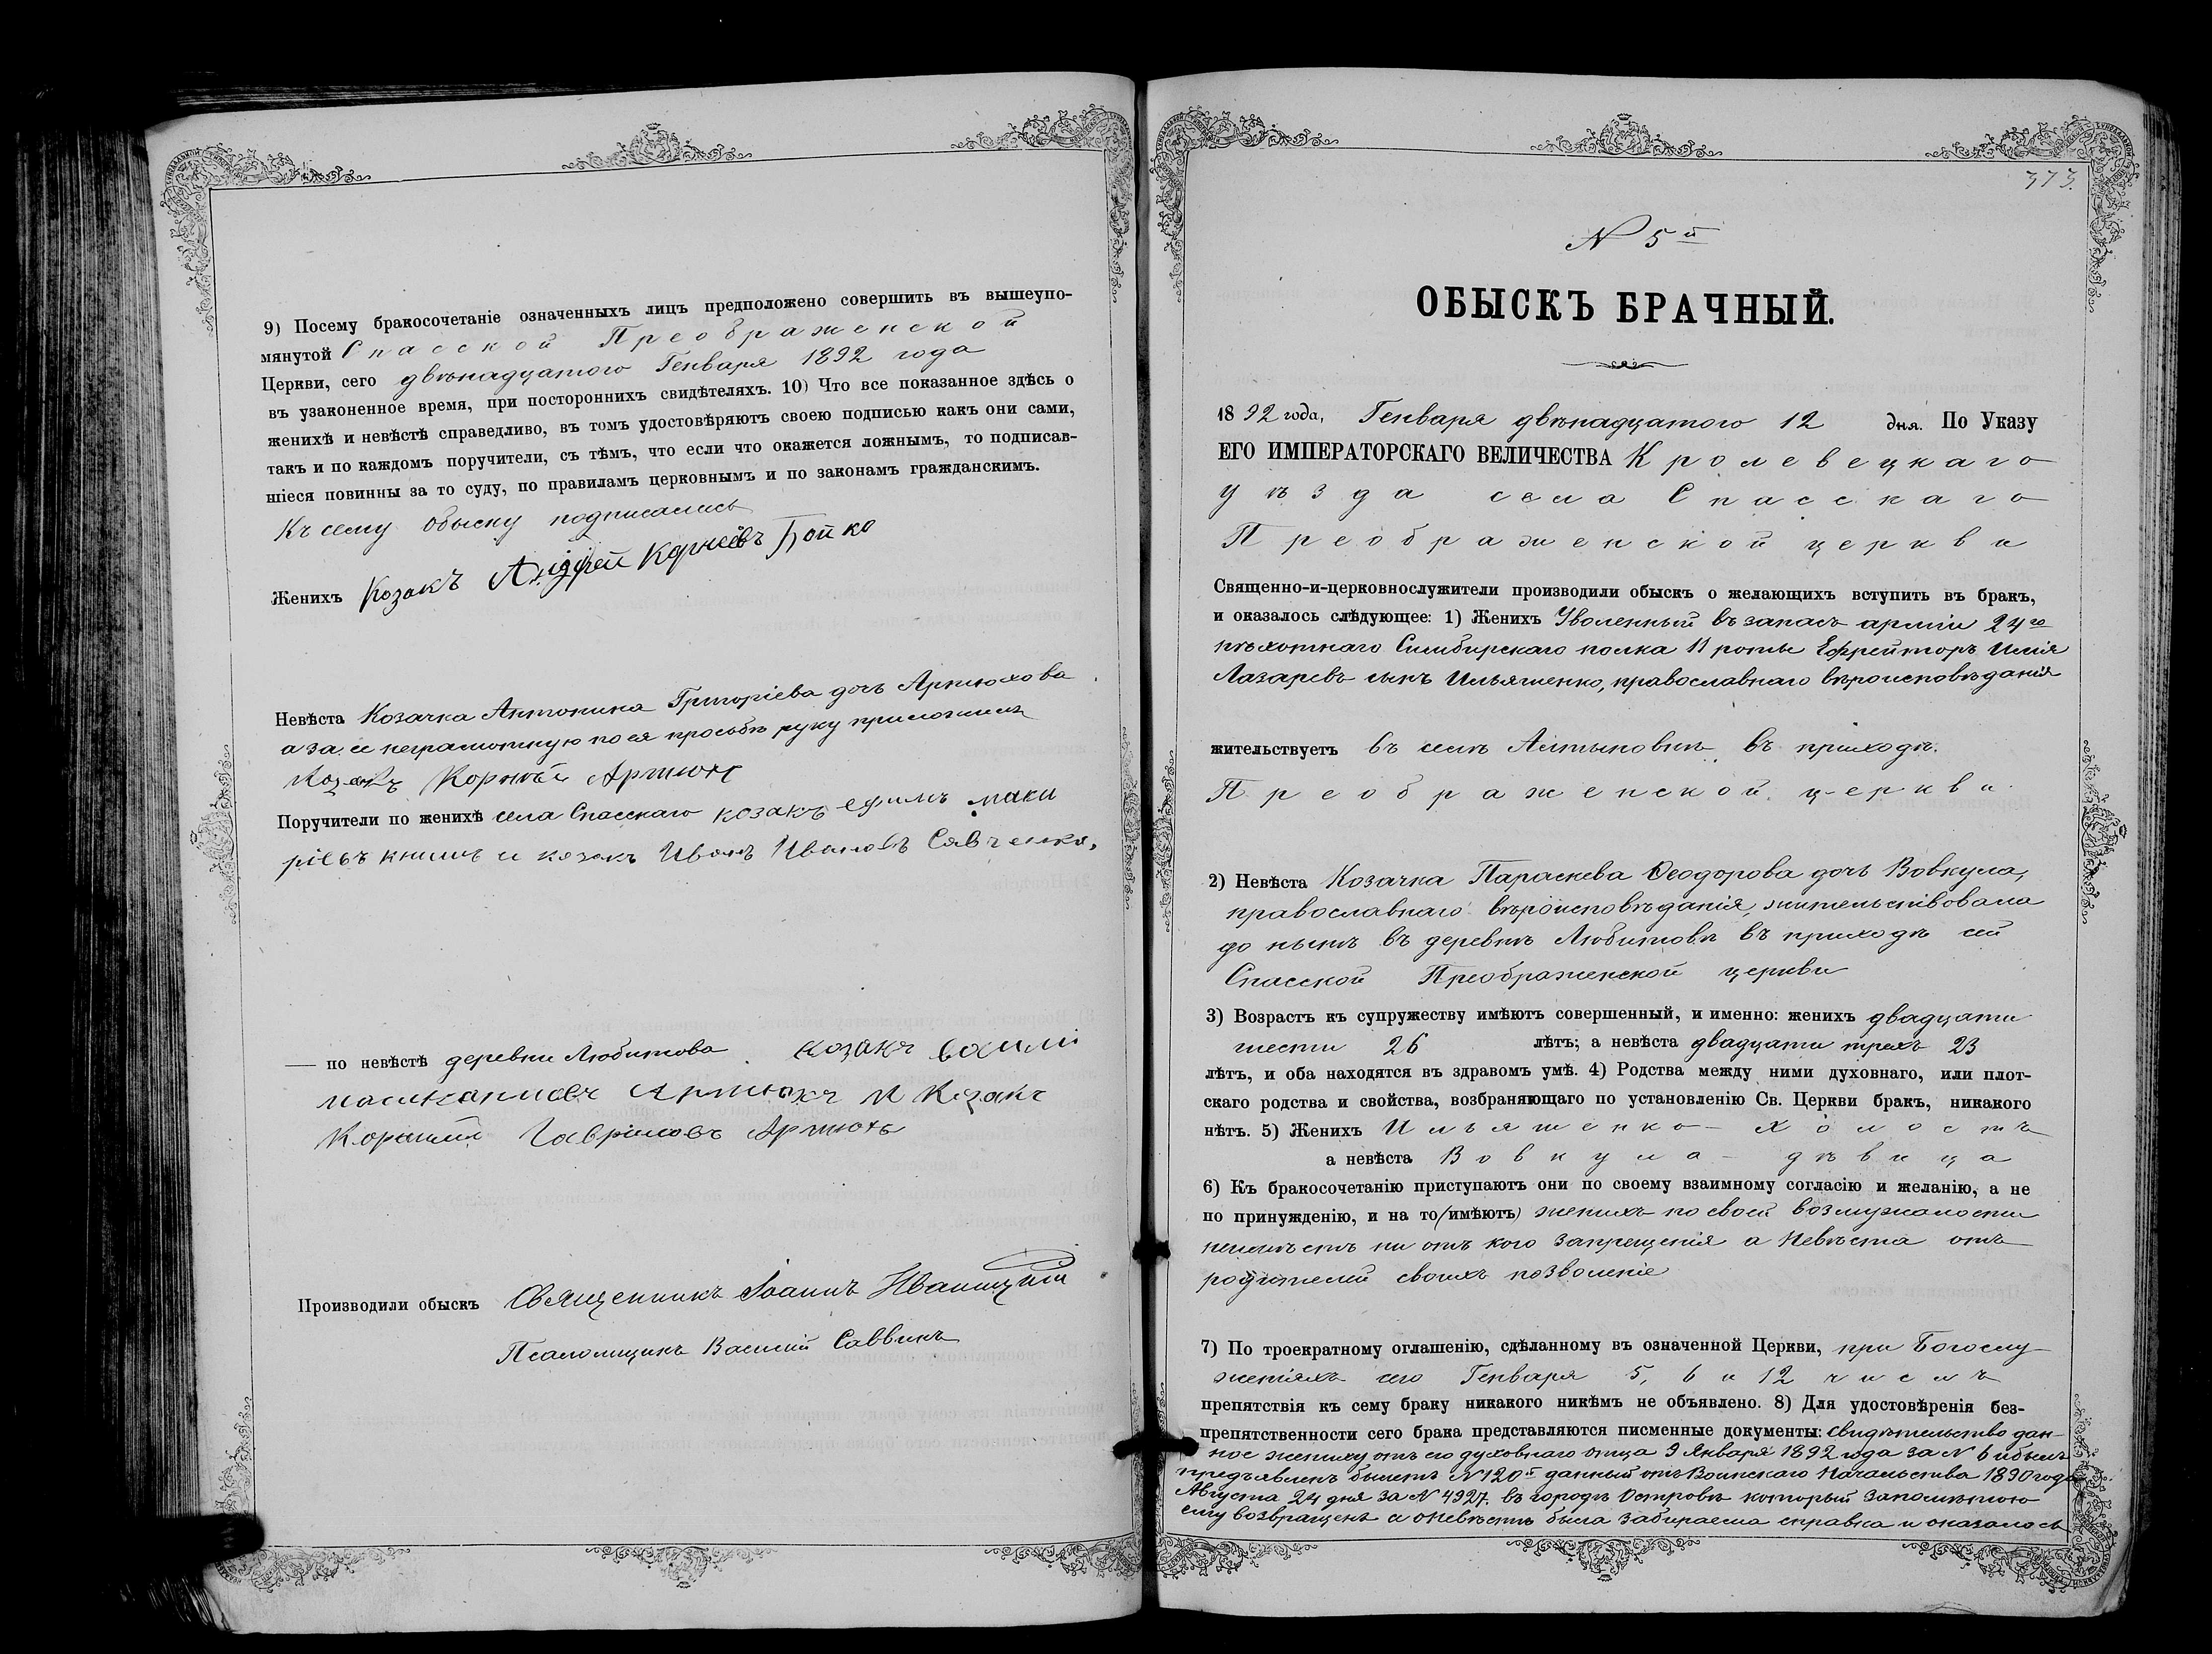 9) Посему бракосочетаніе означенныхъ лицъ предположено совершить въ вышеупо-
мянутой Спасской Преображенской
Церкви, сего двѣнадцатого Генваря 1892 года
въ узаконенное время, при постороннихъ свидѣтеляхъ. 10) Что все показанное здѣсь о
женихѣ и невѣстѣ справедливо, въ томъ удостовѣряютъ своею подписью какъ они сами,
такъ и по каждомъ поручители, съ тѣмъ, что если что окажется ложнымъ, то подписав-
шіеся повинны за то суду, по правиламъ церковнымъ и по законамъ гражданскимъ.
Къ сему обыску подписались
Женихъ Козакъ Андрей Корнѣевъ Бойко
Невѣста Козачка Антонина Григоріева дочь Артюхова
а за ее неграмотную по ея просьбѣ руку приложилъ
Козакъ Корнѣй Артюхъ
Поручители по женихѣ села Спасскаго козакъ ефимъ маки
ріевъ книшъ и козакъ Иванъ Ивановъ Савченко,
— по невѣстѣ деревни Любитова козакъ васили
Артюхъ и Козакъ
Корнѣй Гавріловъ Артюхъ
Производили обыскъ Священникъ Іоаннъ Иваницкій
Псаломщикъ Василій Саввинъ
373.
N 5й
ОБЫСКЪ БРАЧНЫЙ.
1892 года, Генваря двѣнадцатого 12 дня. По Указу
ЕГО ИМПЕРАТОРСКАГО ВЕЛИЧЕСТВА Кролевецкаго
уѣзда села Спасскаго
Преображенской церкви
Священно-и-церковнослужители производили обыскъ о желающихъ вступить въ бракъ,
и оказалось слѣдующее: 1) Женихъ Уволенный въ запасъ арміи 24го
пѣхотнаго Симбирскаго полка 11 роты Ефрейторъ Илія
Лазаревъ сынъ Ильяшенко, православнаго вѣроисповѣданія
жительствуетъ въ селѣ Алтыновкѣ въ приходѣ
Преображенской церкви.
2) Невѣста Козачка Параскева Ѳеодорова дочь Вовкула,
православнаго вѣроисповѣданія, жительствовала
до нынѣ въ деревнѣ Любитовѣ въ приходѣ сей
Спасской Преображенской церкви
3) Возрастъ къ супружеству имѣютъ совершенный, и именно: женихъ двадцати
шести 26 лѣтъ; а невѣста двадцати трехъ 23
лѣтъ, и оба находятся въ здравомъ умѣ. 4) Родства между ними духовнаго, или плот-
скаго родства и свойства, возбраняющаго по установленію Св. Церкви бракъ, никакого
нѣтъ. 5) Женихъ Ильяшенко — холостъ
а невѣста Вовкула — дѣвица
6) Къ бракосочетанію приступаютъ они по своему взаимному согласію и желанію, а не
по принужденію, и на то (имѣютъ) женихъ по своей возмужалости
неимѣетъ ни отъ кого запрещенія а Невѣста отъ
родителей своихъ позволеніе
7) По троекратному оглашенію, сдѣланному въ означенной Церкви, при Богослу
женіяхъ сего Генваря 5, 6 и 12 числъ
препятствія къ сему браку никакого никѣмъ не объявлено. 8) Для удостовѣренія без-
препятственности сего брака представляются писменные документы: свидѣтельство дан-
ное жениху отъ его духовнаго отца 9 Января 1892 года за N 6 и былъ
предъявленъ билетъ N 120й данный отъ Воинскаго Начальства 1890 года
Августа 24 дня за N 4927. въ городѣ Островѣ который
ему возвращенъ а оневѣстѣ была забираема справка и оказалось